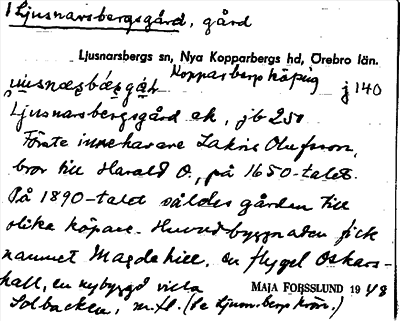 1 Ljusnarsbergsgård, gård
Ljusnarsbergs sn, Nya Kopparbergs hd, Örebro län.
Kopparberg köping j 140
Ljusnarsbergsgård ek, jb 250
Förste innehavare Lakris Olufsson,
bror till Harald O., på 1650-talet.
På 1890-talet såldes gården till
olika köpare. Huvudbyggnaden fick
namnet Magdehill, en flygel Oskars-
hall, en nybyggd villa MAJA FORSSLUND 1948
Solbacken, m.fl. (Se Ljusn.berg krön.)